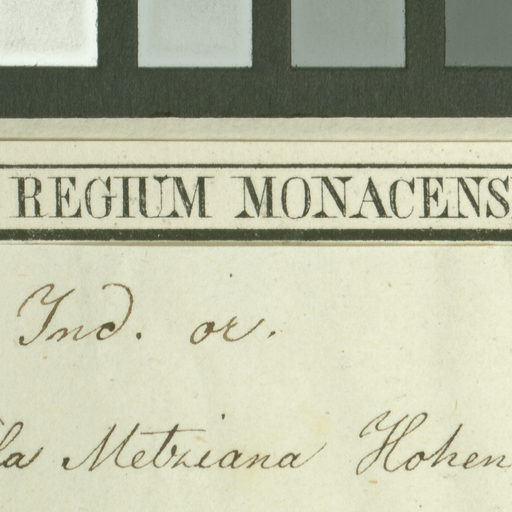 REGIUM MONACENS
Ind. or.
la Metziana Hohen